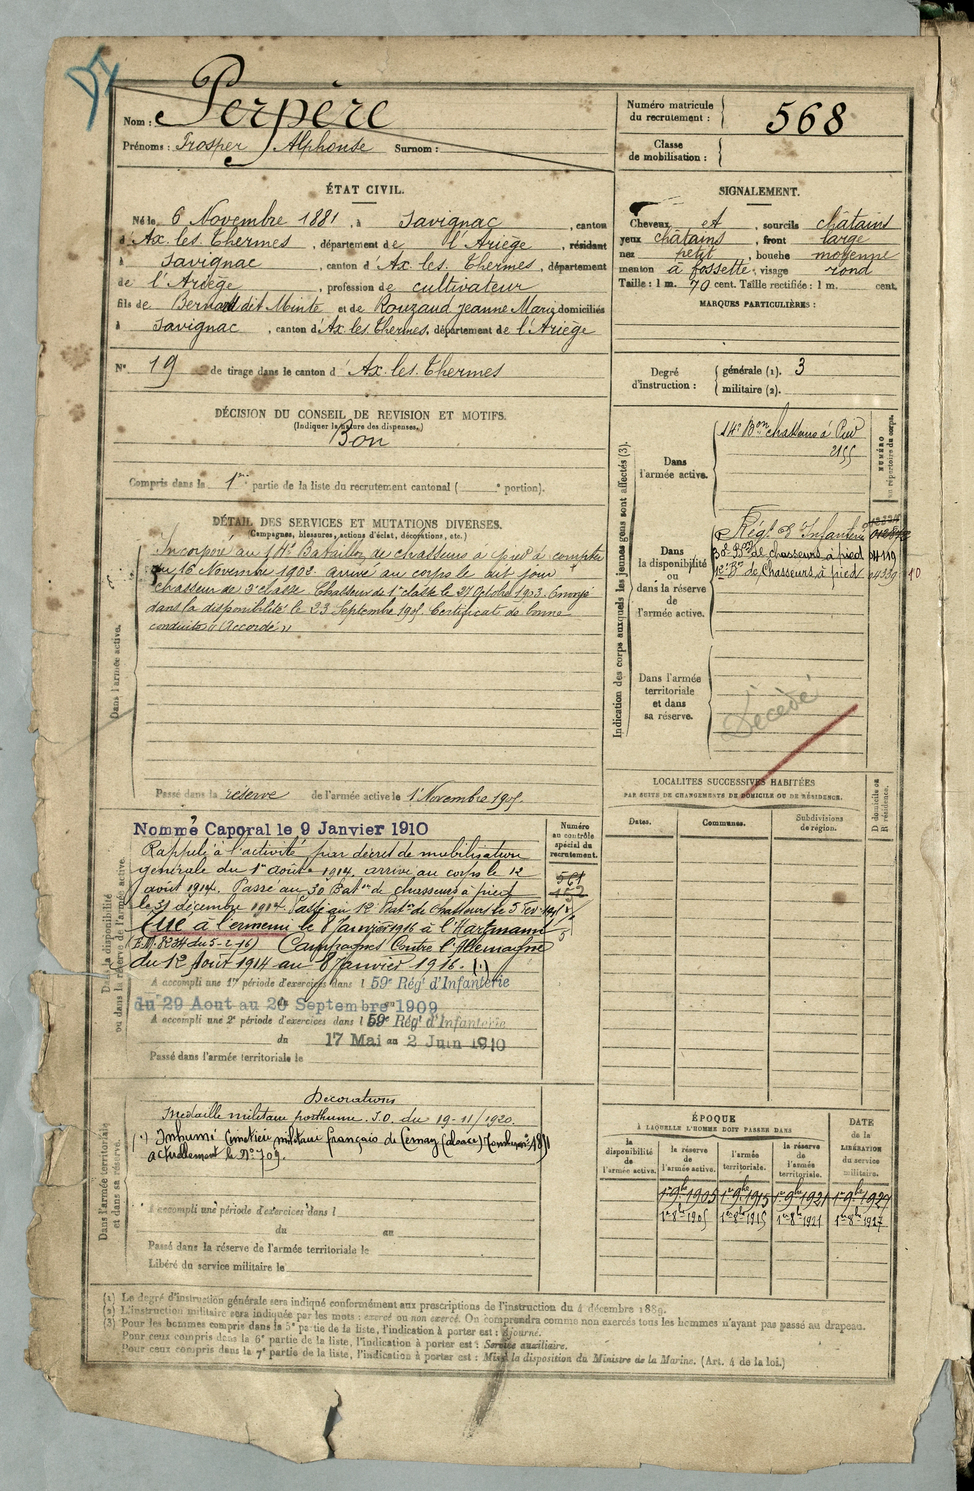 Nom : Perpère
Prénoms : Prosper Alphonse Surnom :
Numéro matricule du recrutement : 568
Classe de mobilisation :
ÉTAT CIVIL.
Né le 6 Novembre 1881, à Savignac, canton
d'Ax les Thermes, département de l'Ariège, résidant
à Savignac, canton d'Ax. les. Thermes, département
de l'Ariège, profession de cultivateur
fils de Bernard dit Minte et de Rouzaud Jeanne Marie domiciliés
à Savignac, canton d'Ax les Thermes, département de l'Ariège
N° 19 de tirage dans le canton d'Ax. les. Thermes
SIGNALEMENT.
Cheveux et, sourcils châtains
yeux châtains, front large
nez petit, bouche moyenne
menton à fossette, visage rond
Taille : 1 m. 70 cent. Taille rectifiée : 1 m. cent.
MARQUES PARTICULIÈRES :
Degré d'instruction : générale (1). 3
militaire (2).
DÉCISION DU CONSEIL DE REVISION ET MOTIFS.
(Indiquer la nature des dispenses.)
Bon
Compris dans la 1re partie de la liste du recrutement cantonal ( e portion).
DÉTAIL DES SERVICES ET MUTATIONS DIVERSES.
(Campagnes, blessures, actions d'éclat, décorations, etc.)
Dans l'armée active.
Incorporé au 14e Bataillon de chasseurs à pied à compter
du 16 Novembre 1902. arrivé au corps le dit jour
chasseur de 2e classe. Chasseur de 1e classe le 27 Octobre 1903. Envoyé
dans la disponibilité le 23 Septembre 1905. Certificat de bonne
conduite "Accordé"
Passé dans la réserve de l'armée active le 1 Novembre 1905.
Indication des corps auxquels les jeunes gens sont affectés (3).
NUMÉRO au répertoire du corps.
Dans l'armée active.
14e Bon chasseurs à Pied
2155
Dans la disponibilité ou dans la réserve de l'armée active.
Régt d'Infanterie
30e Bon de chasseurs à pied
12e Bn de Chasseurs à pied
Dans l'armée territoriale et dans sa réserve.
Décédé
LOCALITÉS SUCCESSIVES HABITÉES
PAR SUITE DE CHANGEMENTS DE DOMICILE OU DE RÉSIDENCE.
Dates. Communes. Subdivisions de région. D domicile ou R résidence.
Dans la disponibilité ou dans la réserve de l'armée active.
Numéro au contrôle spécial du recrutement.
Nommé Caporal le 9 Janvier 1910
Rappelé à l'activité par décret de mobilisation
générale du 1er août 1914. arrivé au corps le 12
août 1914. Passé au 30 Baton de chasseurs à pied
le 31 décembre 1914. Passé au 12 Baton de chasseurs le 5 Fev. 1915
Tué à l'ennemi le 8 Janvier 1916 à l'Hartmann
Campagnes Contre l'Allemagne
du 12 Août 1914 au 8 Janvier 1916. (1)
A accompli une 1re période d'exercices dans l 59e Régt d'Infanterie
du 29 Aout au 20 Septembre 1909
A accompli une 2e période d'exercices dans l 59e Régt d'Infanterie
du 17 Mai au 2 Juin 1910
Passé dans l'armée territoriale le
Dans l'armée territoriale et dans sa réserve.
Décorations
Médaille militaire posthume. J.O. du 19-11/1920.
(1) Inhumé cimetière militaire français de Cernay (Alsace) Tombe n° 1811
actuellement le N° 709.
A accompli une période d'exercices dans l
du au
Passé dans la réserve de l'armée territoriale le
Libéré du service militaire le
ÉPOQUE
A LAQUELLE L'HOMME DOIT PASSER DANS
DATE de la LIBÉRATION du service militaire.
la disponibilité de l'armée active. la réserve de l'armée active. l'armée territoriale. la réserve de l'armée territoriale.
1er 9bre 1905 1er 9bre 1915 1er 9bre 1921 1er 9bre 1927
1er 8bre 1905 1er 8bre 1915 1er 8bre 1921 1er 8bre 1927
(1) Le degré d'instruction générale sera indiqué conformément aux prescriptions de l'instruction du 4 décembre 1889.
(2) L'instruction militaire sera indiquée par les mots : exercé ou non exercé. On comprendra comme non exercés tous les hommes n'ayant pas passé au drapeau.
(3) Pour les hommes compris dans la 5e partie de la liste, l'indication à porter est : Ajourné.
Pour ceux compris dans la 6e partie de la liste, l'indication à porter est : Service auxiliaire.
Pour ceux compris dans la 7e partie de la liste, l'indication à porter est : Mis à la disposition du Ministre de la Marine. (Art. 4 de la loi.)